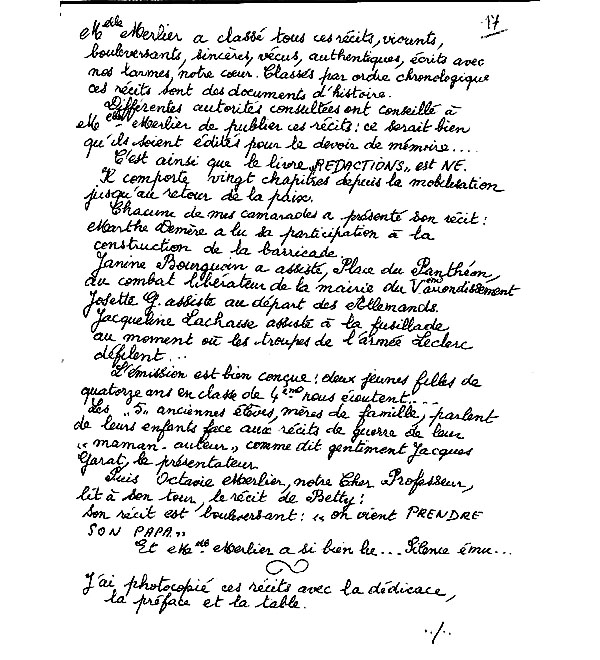 17
Melle Merlier a classé tous ces récits, vivants,
bouleversants, sincères, vécus, authentiques, écrits avec
nos larmes, notre cœur. Classés par ordre chronologique
ces récits sont des documents d'histoire.
Différentes autorités consultées ont conseillé à
Melle Merlier de publier ces récits : ce serait bien
qu'ils soient édités pour le devoir de mémoire....
C'est ainsi que le livre „REDACTIONS„ est NÉ.
Il comporte vingt chapitres depuis la mobilisation
jusqu'au retour de la paix.
Chacune de mes camarades a présenté son récit :
Marthe Demère a lu sa participation à la
construction de la barricade
Janine Bourguoin a assisté, Place du Panthéon,
au combat libérateur de la mairie du Vème arrondissement
Josette G. assiste au départ des Allemands.
Jacqueline Lachasse assiste à la fusillade,
au moment où les troupes de l'armée Leclerc
défilent...
L'émission est bien conçue : deux jeunes filles de
quatorze ans en classe de 4ème nous écoutent....
Les „5„ anciennes élèves, mères de famille, parlent
de leurs enfants face aux récits de guerre de leur
„maman-auteur„ comme dit gentiment Jacques
Garat, le présentateur.
Puis Octavie Merlier, notre Cher Professeur,
lit à son tour, le récit de Betty :
son récit est bouleversant : „on vient PRENDRE
SON PAPA„
Et Melle Merlier a si bien lu... Silence ému...
J'ai photocopié ces récits avec la dédicace,
la préface et la table.
../.